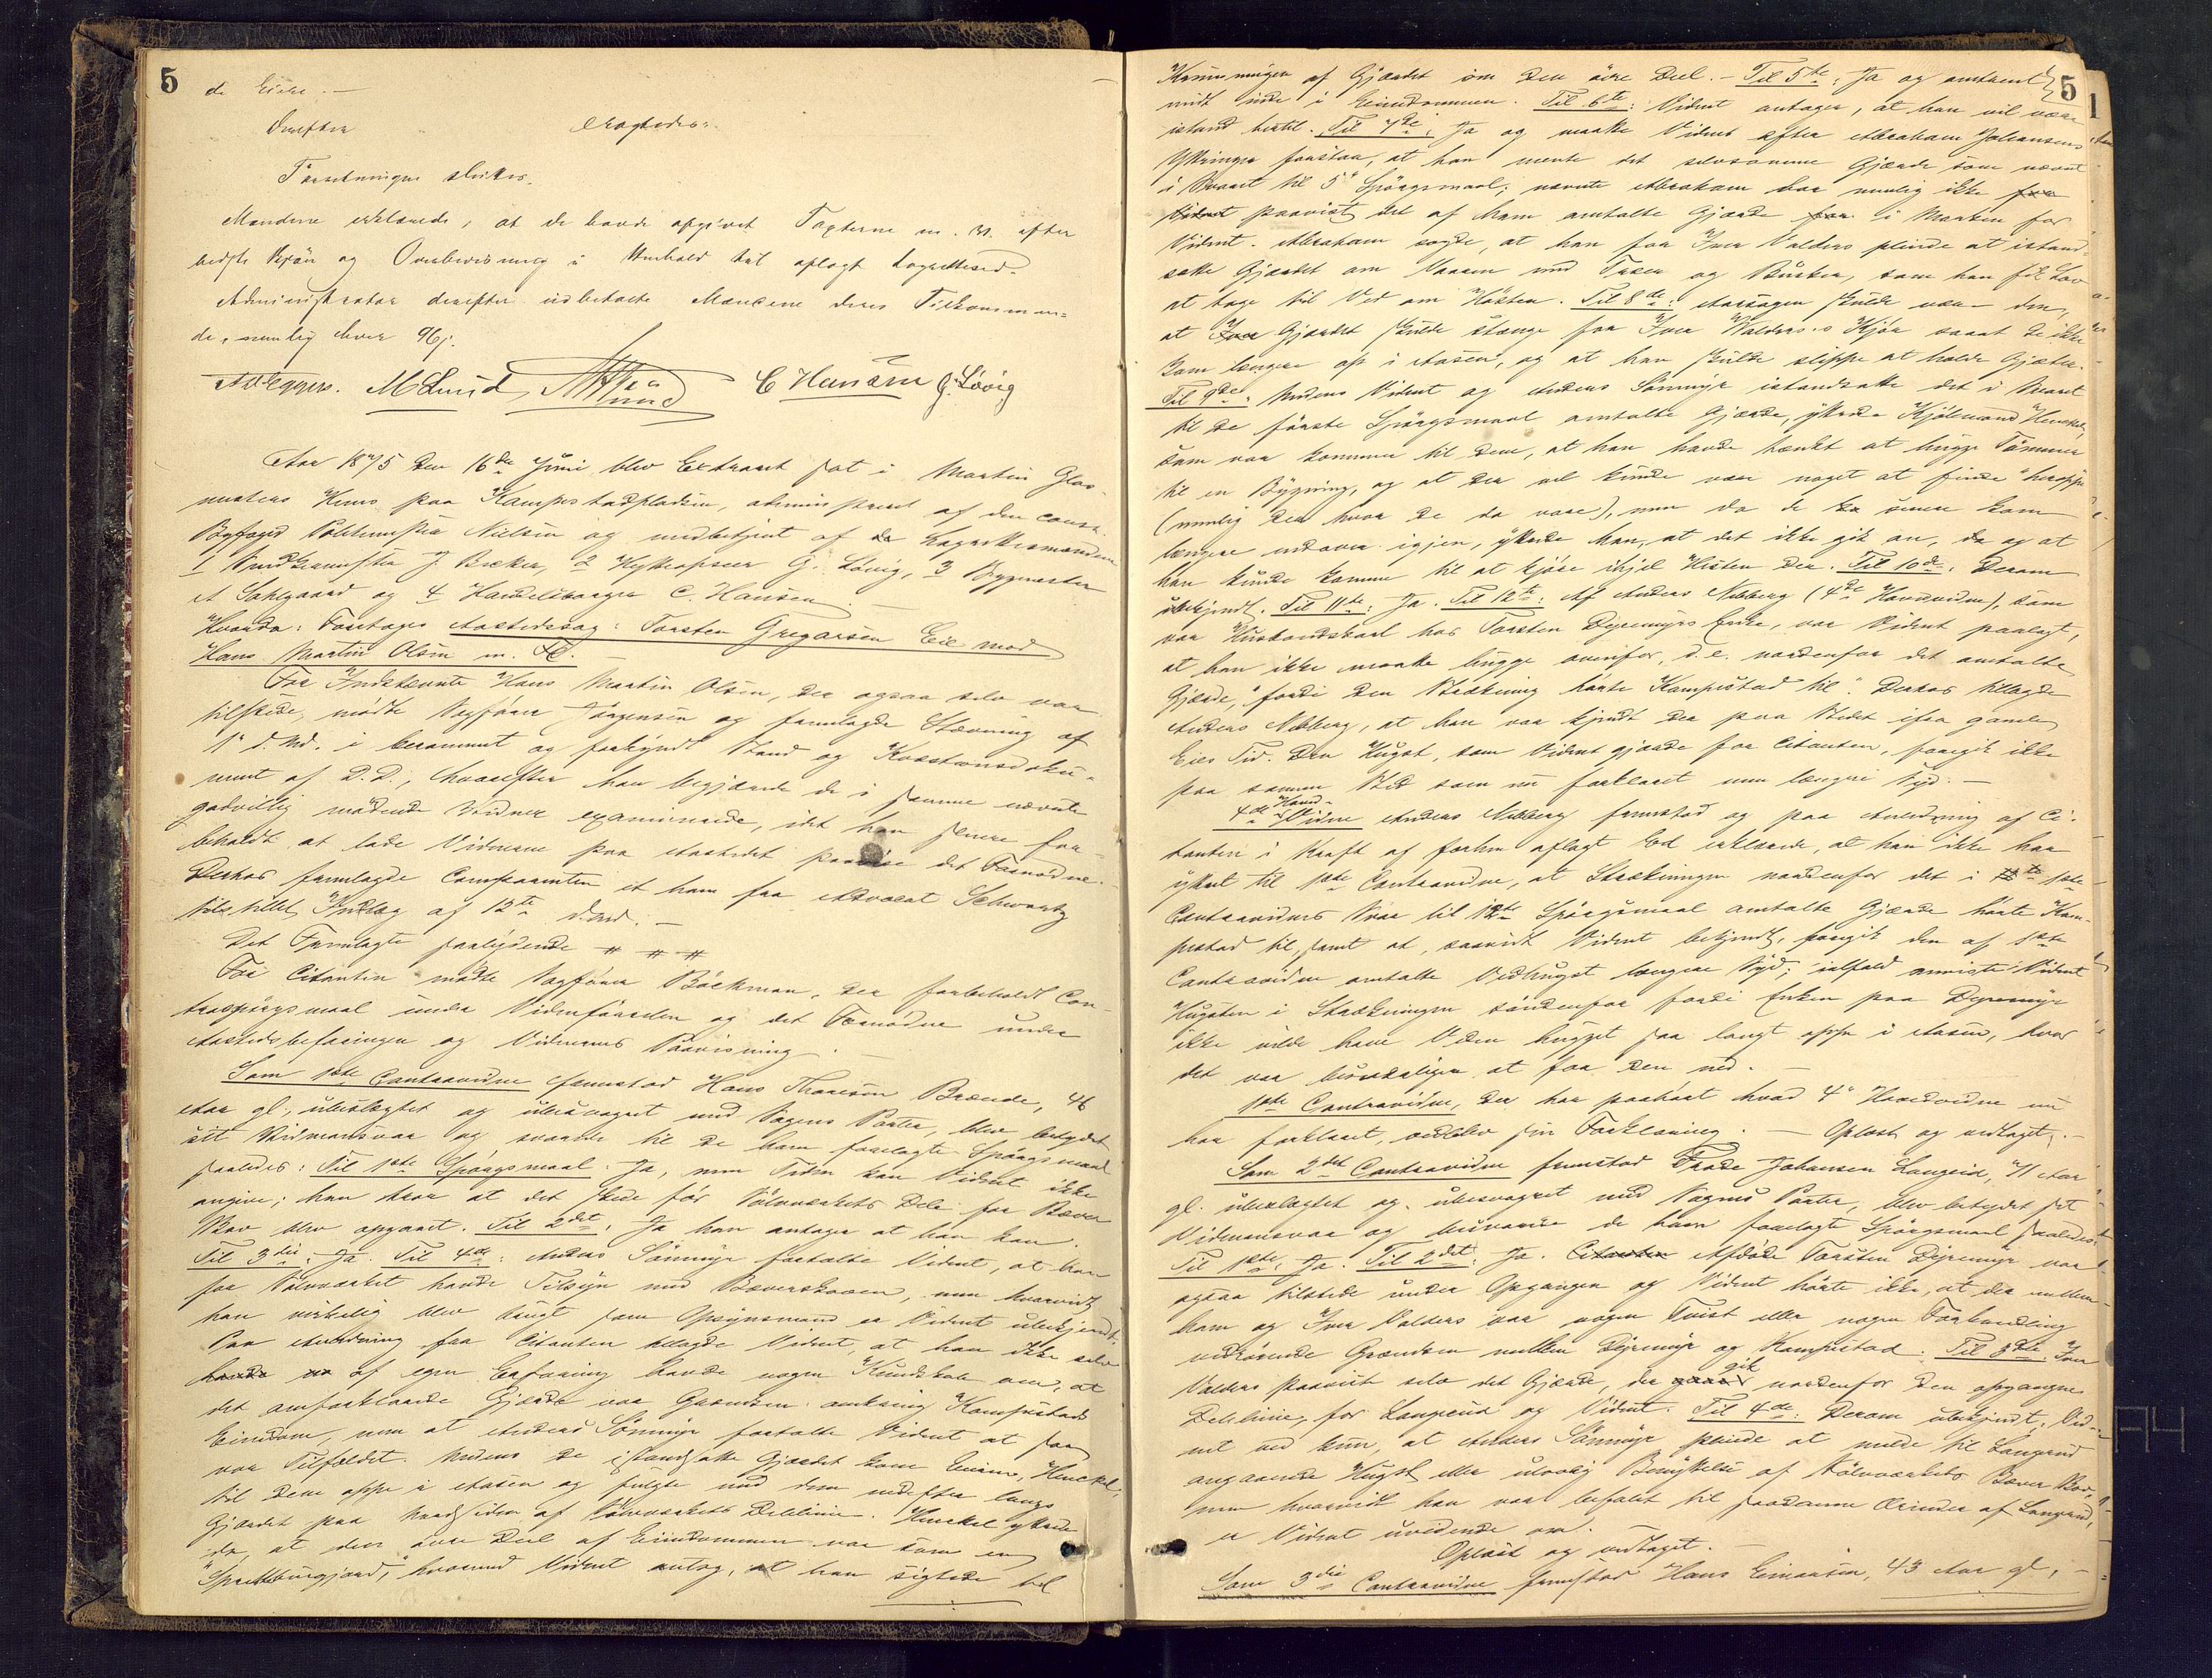 5
de Eiere. —
Derefter
Forretningen sluttes.
Mændene erklærede, at de havde opgivet Taxterne m. v. efter
bedste Skjøn og Overbeviisning i Henhold til aflagt Lagrettesed.
Administrator derefter udbetalte Mændene deres Tilkommen-
de, nemlig hver
A Eggers. M Lund C Hansen G. Løvig
Aar 1875 den 16de Juni blev Extraret sat i Martin Glas-
mesters Huus paa Kampestadpladsen, administreret af den const.
Byfoged Politimester Nielsen og medbetjent af de Lagrettesmændene
1 J. Becker, 2 G. Løvig, 3 Bygmester
A Sahlgaard og 4 Handelsborger C. Hansen.
Hvorda: Foretages Aastedssag: Torsten Gregersen Eie mod
Hans Martin Olsen m. Fl.
For Indstevnte Hans Martin Olsen, der ogsaa selv var
tilstede, mødte Sagfører Jørgensen og fremlagde Stævning af
11 d. Md. i berammet og forkyndt Stand og Kvæstionsdoku-
ment af D. D., hvorefter han begjærede de i samme nævnte
godvillig mødende Vidner examinerede, idet han senere for-
beholdt at lade Vidnerne paa Aastedet paavise det Fornødne.
Derhos fremlagde Comparenten et ham fra Advocat Schwartz
tilstillet Indlæg af 12te d. Md. —
Det Fremlagte saalydende # # #
For Citanten mødte Sagfører Böckman, der forbeholdt Con-
traspørgsmaal under Vidneførselen og det Fornødne under
Aastedsbefaringen og Vidnernes Paavisning. —
Som 1ste Contravidne fremstod Hans Thoresen Brænde, 46
Aar gl., ubeslægtet og ubesvogret med Sagens Parter, blev betydet
sit Vidneansvar og svarede til de ham forelagte Spørgsmaal
saaledes: Til 1ste Spørgsmaal. Ja, men Tiden kan Vidnet ikke
angive; han troer at det skede før Sølvværkets Dele for Bæver
Skov blev opgaaet. Til 2det. Ja han antager at han kan.
Til 3die: Ja. Til 4de: Anders Sönmyr fortalte Vidnet, at han
for Sølvværket havde Tilsyn med Bæverskoven, men hvorvidt
han virkelig blev brugt som Opsynsmand er Vidnet ubekjendt.
Paa Anledning fra Citanten tillagde Vidnet, at han ikke selv
havde af egen Erfaring havde nogen Kundskab om, at
det omforklarede Gjærde var Grændsen omkring Kampestads
Eiendom, men at Anders Sönmyr fortalte Vidnet at saa
var Tilfældet. Medens de istandsatte Gjærdet kom Henckel,
til dem oppe i Aasen og fulgte med dem nedefter langs
Gjærdet paa af Sølvværkets Delelinie. Henckel yttrede
da, at den øvre Deel af Eiendommen var som en
hvormed Vidnet antog, at han sigtede til
5
Krumningen af Gjærdet om den øvre Deel. — Til 5te: Ja og omtrent
midt inde i Eiendommen. Til 6te: Vidnet antager, at han vil være
istand hertil. Til 7de. Ja og maatte Vidnet efter Abraham Johansens
Yttringer forstaa, at han mente det selvsamme Gjærde som nævnt
i Svaret til 5 Spørgsmaal; nævnte Abraham har nemlig ikke
Vidnet paavist det af ham omtalte Gjærde i Marken for
Vidnet. Abraham sagde, at han for Iver Valders pleiede at istand-
sætte Gjærdet om Vaaren med Træer og Buske, som han fik Lov
at tage til Ved om Høsten. Til 8de: Aarsagen skulde være den,
at Gjærdet skulde stænge for Iver Valders's Kjør saaat de ikke
kom længere op i Aasen, og at han skulde slippe at holde Gjæter.
Til 9de. Medens Vidnet og Anders Sönmyr istandsatte det i Svaret
til de første Spørgsmaal omtalte Gjærde, yttrede Henckel,
som var kommen til dem, at han havde tænkt at hugge Tømmer
til en Bygning, og at der vel kunde være noget at finde heroppe
(nemlig der hvor de da vare), men da de senere kom
længere nedover igjen, yttrede han, at det ikke gik an, da og at
han kunde komme til at kjøre ihjel Hesten der. Til 10de. Derom
ubekjendt. Til 11te: Ja. Til 12te: Af Anders Nibberg (4de Hovedvidne), som
var Husbondskarl hos Torsten Dyremyrs Enke, var Vidnet paalagt,
at han ikke maatte hugge ovenfor, d. e. nordenfor det omtalte
Gjærde, "fordi den Strækning hørte Kampestad til". Derhos tillagde
Anders Nibberg, at han var kjendt der paa Stedet ifra gamle
Eies Tid. Den Hugst, som Vidnet gjorde for Citanten, foregik ikke
paa samme Sted som nu forklaret men længere Syd. —
4de Hovedvidne Anders Nibberg fremstod og paa Anledning af Ci-
tanten i Kraft af forhen aflagt Eed erklærede, at han ikke har
yttret til 1ste Contravidne, at Strækningen nordenfor det i 1ste
Contravidnes Svar til 12te Spørgsmaal omtalte Gjærde hørte Kam-
pestad til, samt at, saavidt Vidnet bekjendt, foregik den af 1ste
Contravidne omtalte Vedhugst længere Syd; ialfald anviste Vidnet
Hugsten i Strækningen søndenfor fordi Enken paa Dyremyr
ikke vilde have Veden hugget saa langt oppe i Aasen, hvor
det var besværligere at faa den ned. —
1ste Contravidne, der har paahørt hvad 4 Hovedvidne nu
har forklaret, vedblev sin Forklaring. — Oplæst og vedtaget. —
Som 2det Contravidne fremstod Frode Johansen Langerud, 41 Aar
gl. ubeslægtet og ubesvogret med Sagens Parter, blev betydet sit
Vidneansvar og besvarede de ham forelagte Spørgsmaal saaledes:
Til 1ste. Ja. Til 2det. Ja. Citanten Afdøde Torsten Dyremyr var
ogsaa tilstede under Opgangen og Vidnet hørte ikke, at der mellem
ham og Iver Valders var nogen Tvist eller nogen Forhandling
vedrørende Grændsen mellem Dyremyr og Kampestad. Til 3die Iver
Valders paaviste selv det Gjærde, der gik nordenfor den opgangne
Delelinie, for Langerud og Vidnet. Til 4de. Derom ubekjendt; Vid-
net ved kun, at Anders Sönmyr pleiede at melde til Langerud
angaaende Hugst eller ulovlig Benyttelse af Sølvværkets Bæver Skov,
men hvorvidt han var befalet til saadanne Ærinder af Langerud,
er Vidnet uvidende om.
Oplæst og vedtaget. —
Som 3die Contravidne fremstod Hans Einarsen, 43 Aar gl., —